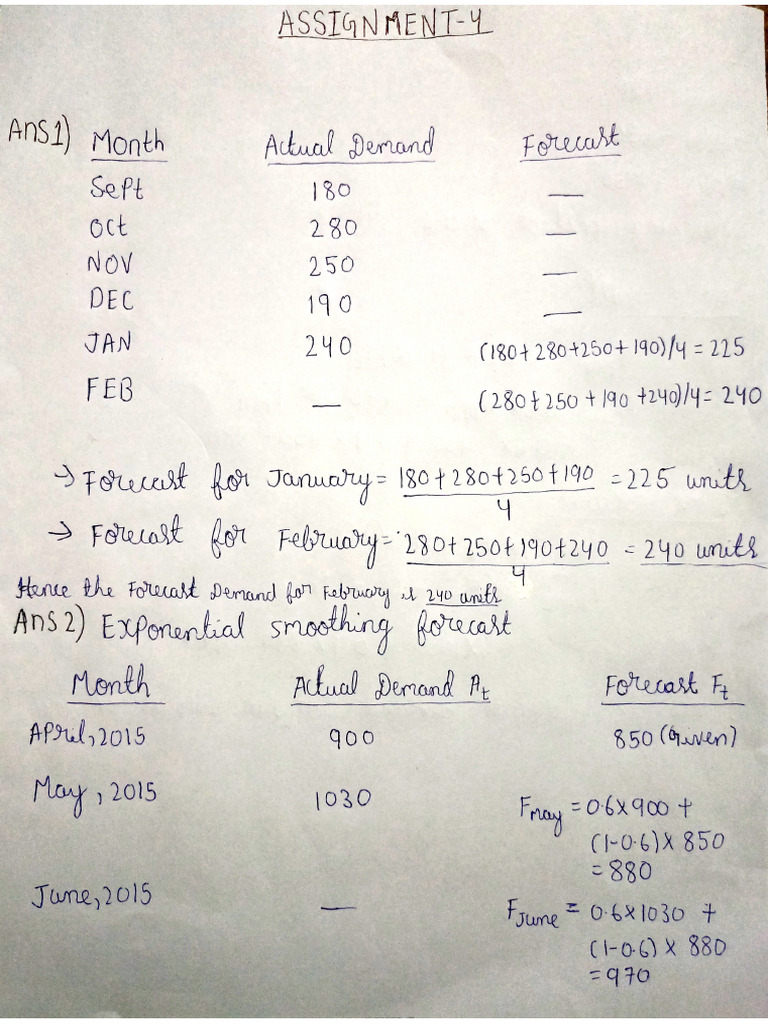 ASSIGNMENT-4
Ans1) Month Actual Demand Forecast
Sept 180 —
Oct 280 —
NOV 250 —
DEC 190 —
JAN 240 (180+280+250+190)/4 = 225
FEB — (280+250+190+240)/4= 240
→ Forecast for January = 180+280+250+190 / 4 = 225 units
→ Forecast for February = 280+250+190+240 / 4 = 240 units
Hence the Forecast Demand for February is 240 units
Ans2) Exponential smoothing forecast
Month Actual Demand At Forecast Ft
April,2015 900 850 (Given)
May, 2015 1030 Fmay = 0.6×900 +
(1-0.6)× 850
= 880
June,2015 — FJune = 0.6×1030 +
(1-0.6) × 880
= 970